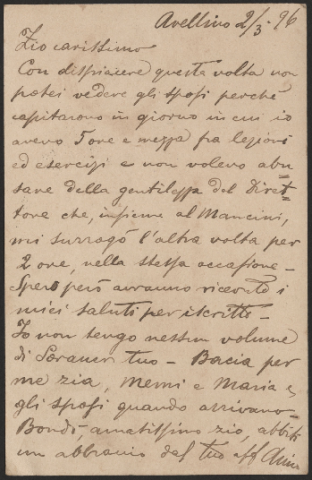 Avellino 2/3. 96
Zio carissimo
Con dispiacere questa volta non
potei vedere gli sposi perchè
capitarono in giorno in cui io
avevo 5 ore e mezza fra lezioni
ed esercizi e non volevo abu=
sare della gentilezza del Diret=
tore che, insieme al Mancini,
mi surrogò l'altra volta per
2 ore, nella stessa occasione_
Spero però avranno ricevuto i
miei saluti per iscritto_
Io non tengo nessun volume
di tuo_ Bacia per
me zia, Memi e Maria e
gli sposi quando arrivano_
amatissimo zio, abbiti
un abbraccio dal tuo aff